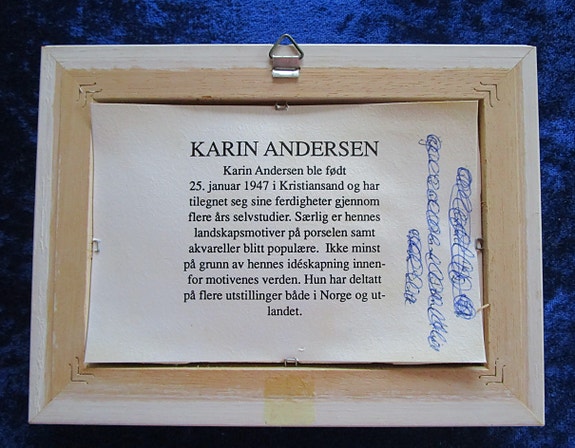 KARIN ANDERSEN
Karin Andersen ble født
25. januar 1947 i Kristiansand og har
tilegnet seg sine ferdigheter gjennom
flere års selvstudier. Særlig er hennes
landskapsmotiver på porselen samt
akvareller blitt populære. Ikke minst
på grunn av hennes idéskapning innen-
for motivenes verden. Hun har deltatt
på flere utstillinger både i Norge og ut-
landet.